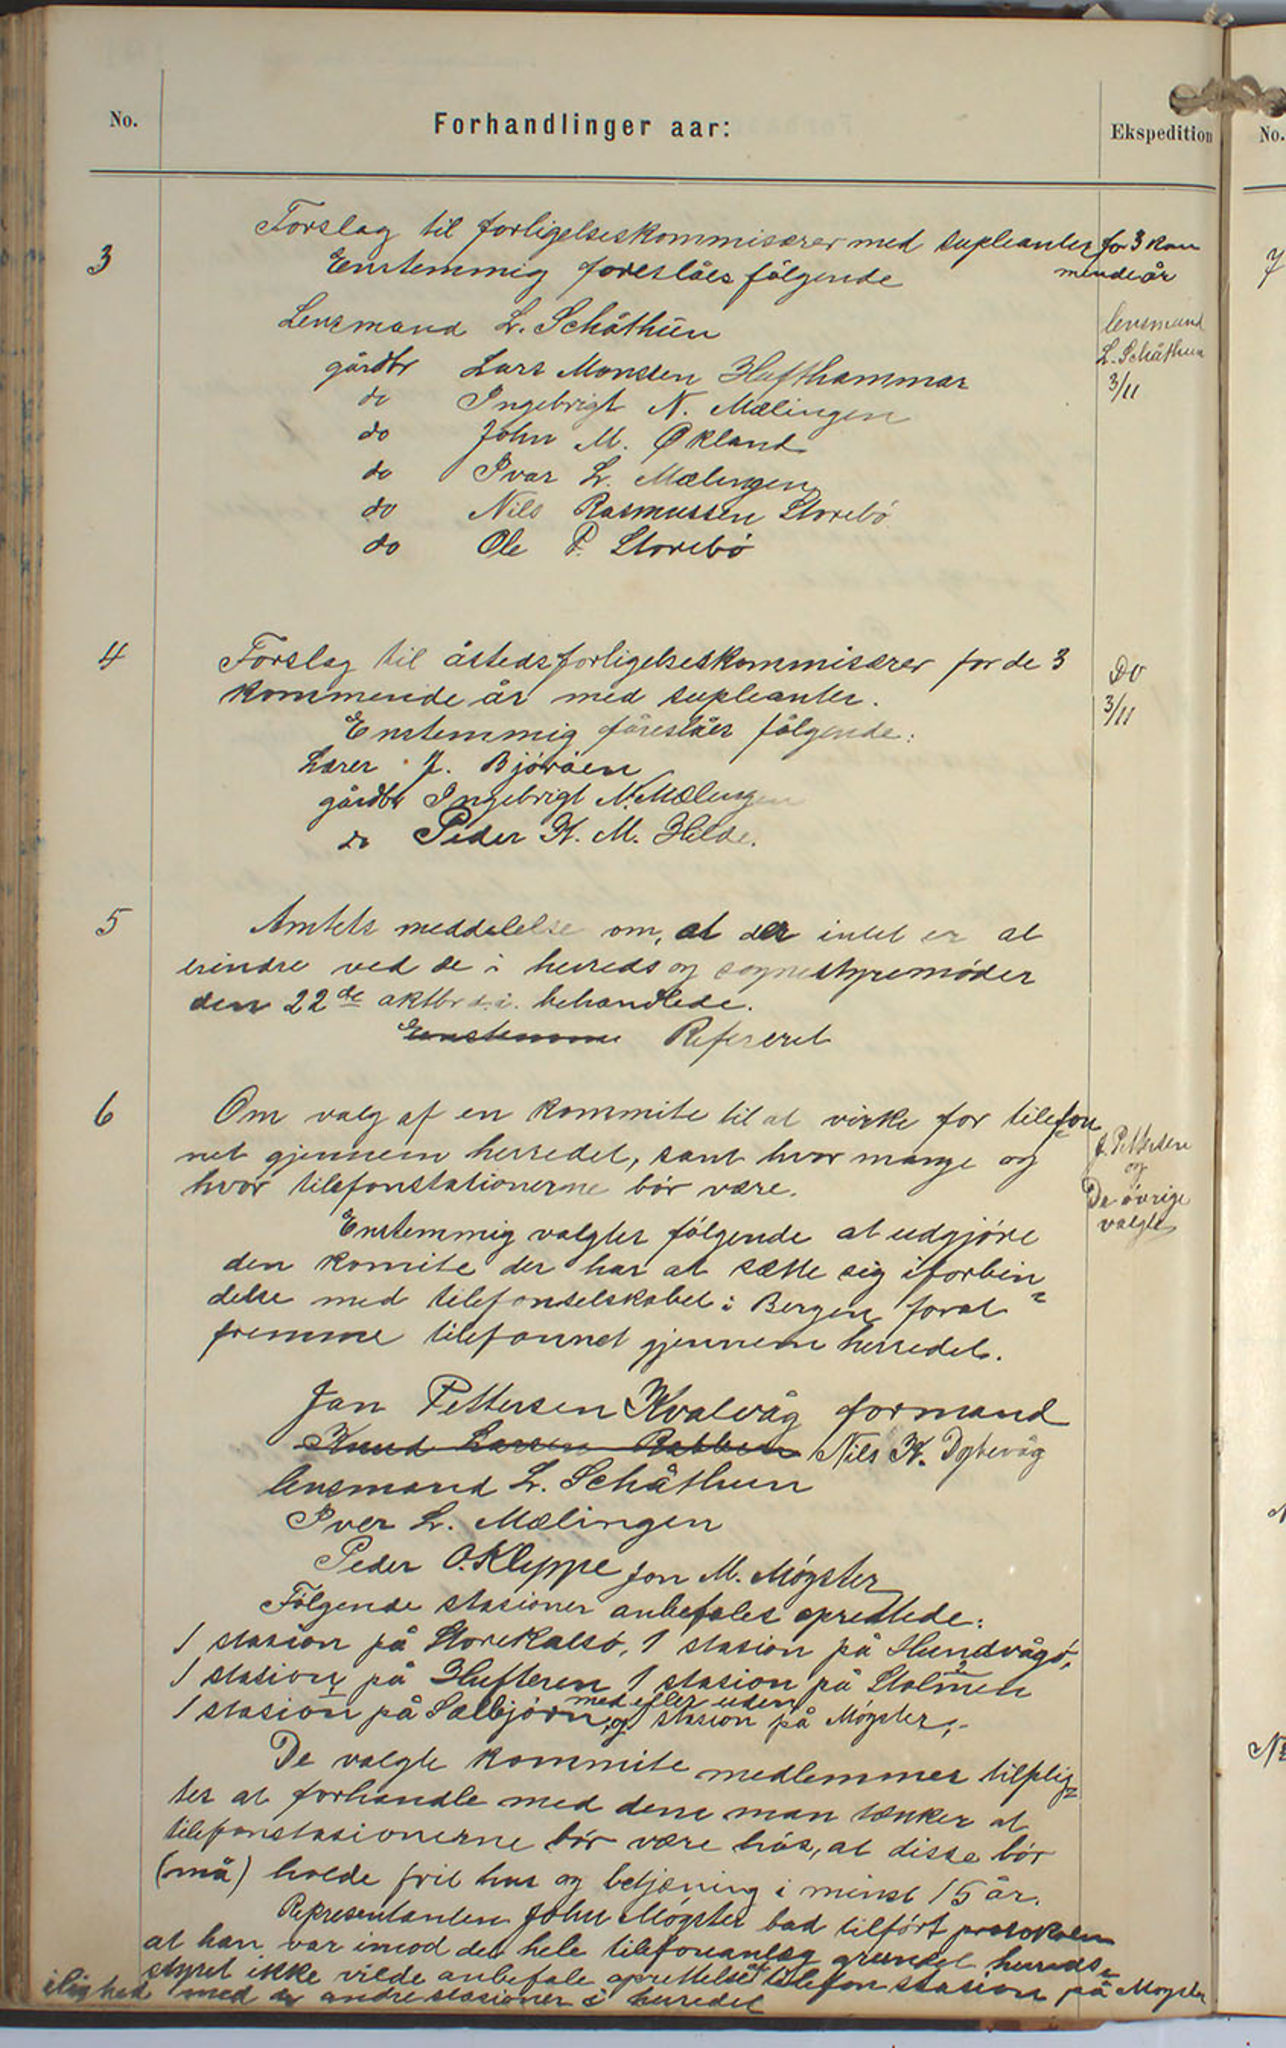 No.
Forhandlinger aar:
Ekspedition
No.
3
Forslag til forligelseskommisærer med supleanter for 3 kom
mende år
Enstemmig foreslåes følgende
Lensmand L. Schåthun
gårdbr Lars Monssen Hufthammar
do Ingebrigt N. Mælingen
do John M. Økland
do Ivar L. Mælingen
do Nils Rasmussen Storebö
do Ole P. Storebö
lensmand
L. Schåthun
3/11
4
Forslag til åstedsforligelseskommisærer for de 3
kommende år med supleanter.
Enstemmig föreslåes følgende:
Lærer J. Björåen
gårdbr Ingebrigt N. Mælingen
do Peder K. M. Hilde.
Do
3/11
5
Amtets meddelelse om, at der intet er at
erindre ved de i herreds og sognestyremøder
den 22de aktbr d.å. behandlede.
Enstemmi Refereret
6
Om valg af en kommite til at virke for telefon
net gjennem herredet, samt hvor mange og
hvor telefonstationerne bör være.
Enstemmig valgtes følgende at udgjöre
den komite der har at sætte sig i forbin=
delse med telefonselskabet i Bergen forat
fremme telefonnet gjennem herredet.
J. Pettersen
og
De övrige
valgte
Jan Pettersen Kvalvåg formand
Knud Larsen Rabben Nils K. Dybevåg
lensmand L. Schåthun
Iver L. Mælingen
Peder O. Kleppe Jon M. Møgster
Følgende stasioner anbefales oprettede:
1 stasion på Storekalsö, 1 stasion på Hundvågö,
1 stasion på Hufteren 1 stasion på Stolmen
1 stasion på Sælbjörn, og med eller uden stasion på Møgster,-
De valgte kommite medlemmer tilplig=
tes at forhandle med dem man tænker at
telefonstasionerne bör være hös, at disse bör
(må) holde frit hus og betjæning i minst 15 år.
Representanten John Møgster bad tilfört protokolen
at han var imod det hele telefonanlæg grundet herreds=
styret ikke vilde anbefale oprettelse af telefon stasion på Møgster
i lighed med de andre stasioner i herredet